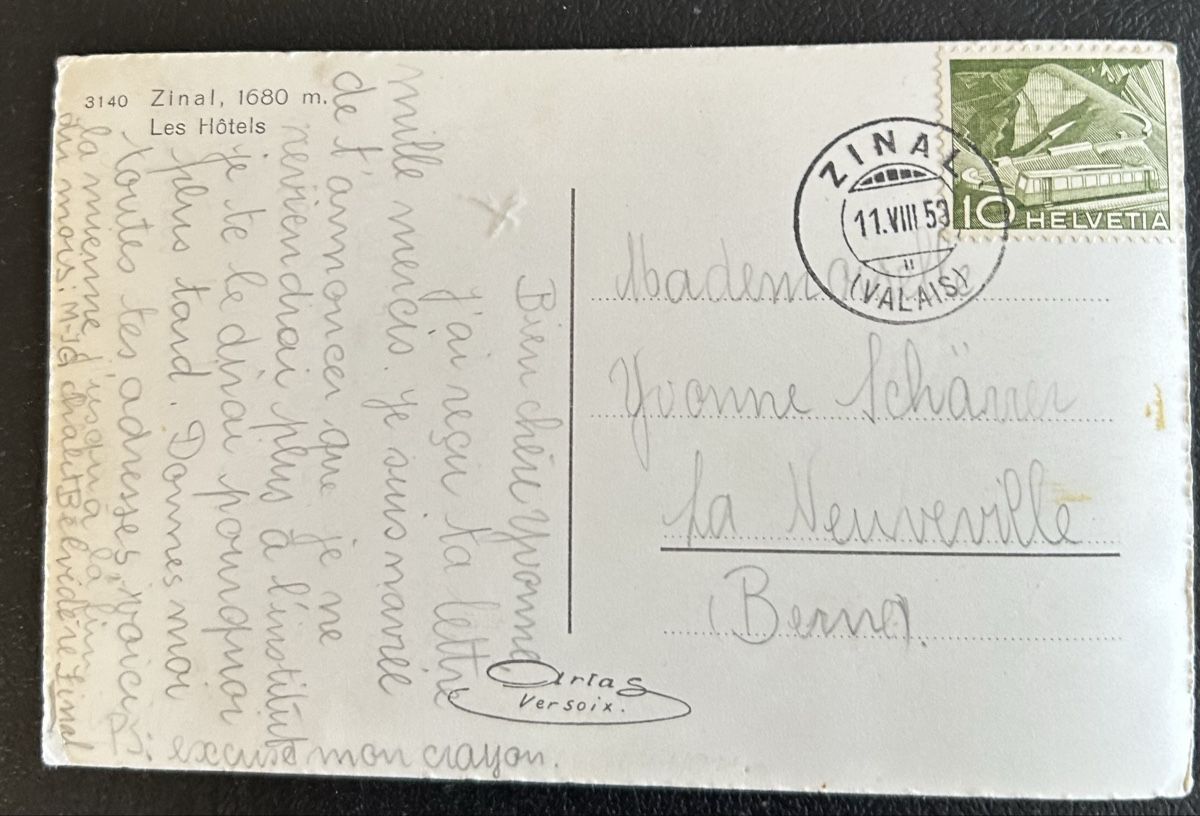 3140 Zinal, 1680 m.
Les Hôtels
Bien chère Yvonne
j'ai reçu ta lettre
mille mercis. je suis navrée
de t'annoncer que je ne
reviendrai plus à l'institut
je te le dirai pourquoi
plus tard. Donnes moi
toutes tes adresses, voici
la mienne jusqu'à la fin
du mois: M-JG châlet Bélvédère Zinal
PS: excuse mon crayon.
Artas
Versoix.
ZINAL
11.VIII 53
(VALAIS)
10 HELVETIA
Mademoiselle
Yvonne Schärrer
La Neuveville
(Berne).